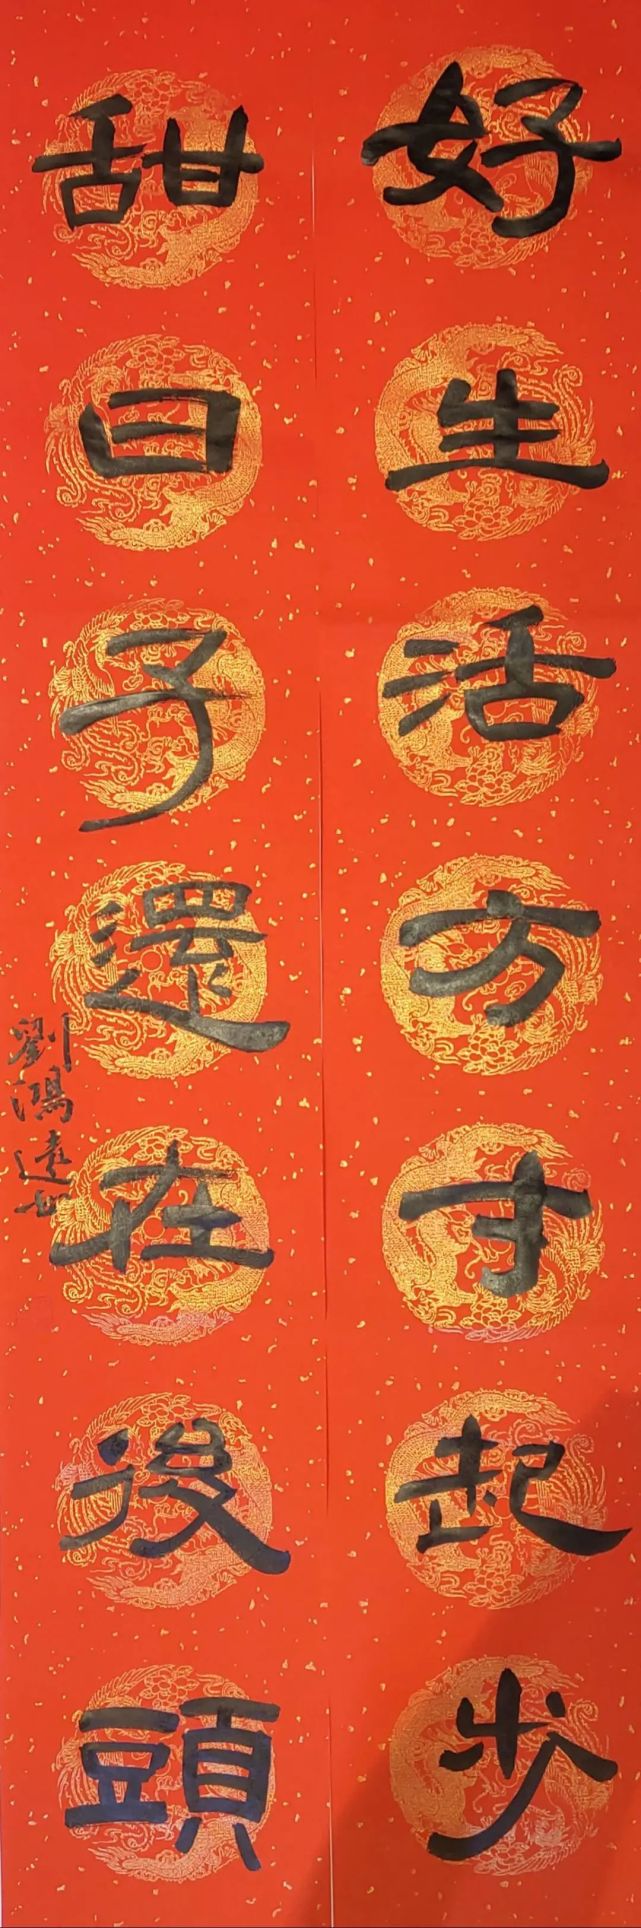 好生活方才起步
甜日子還在後頭
劉鴻遠書